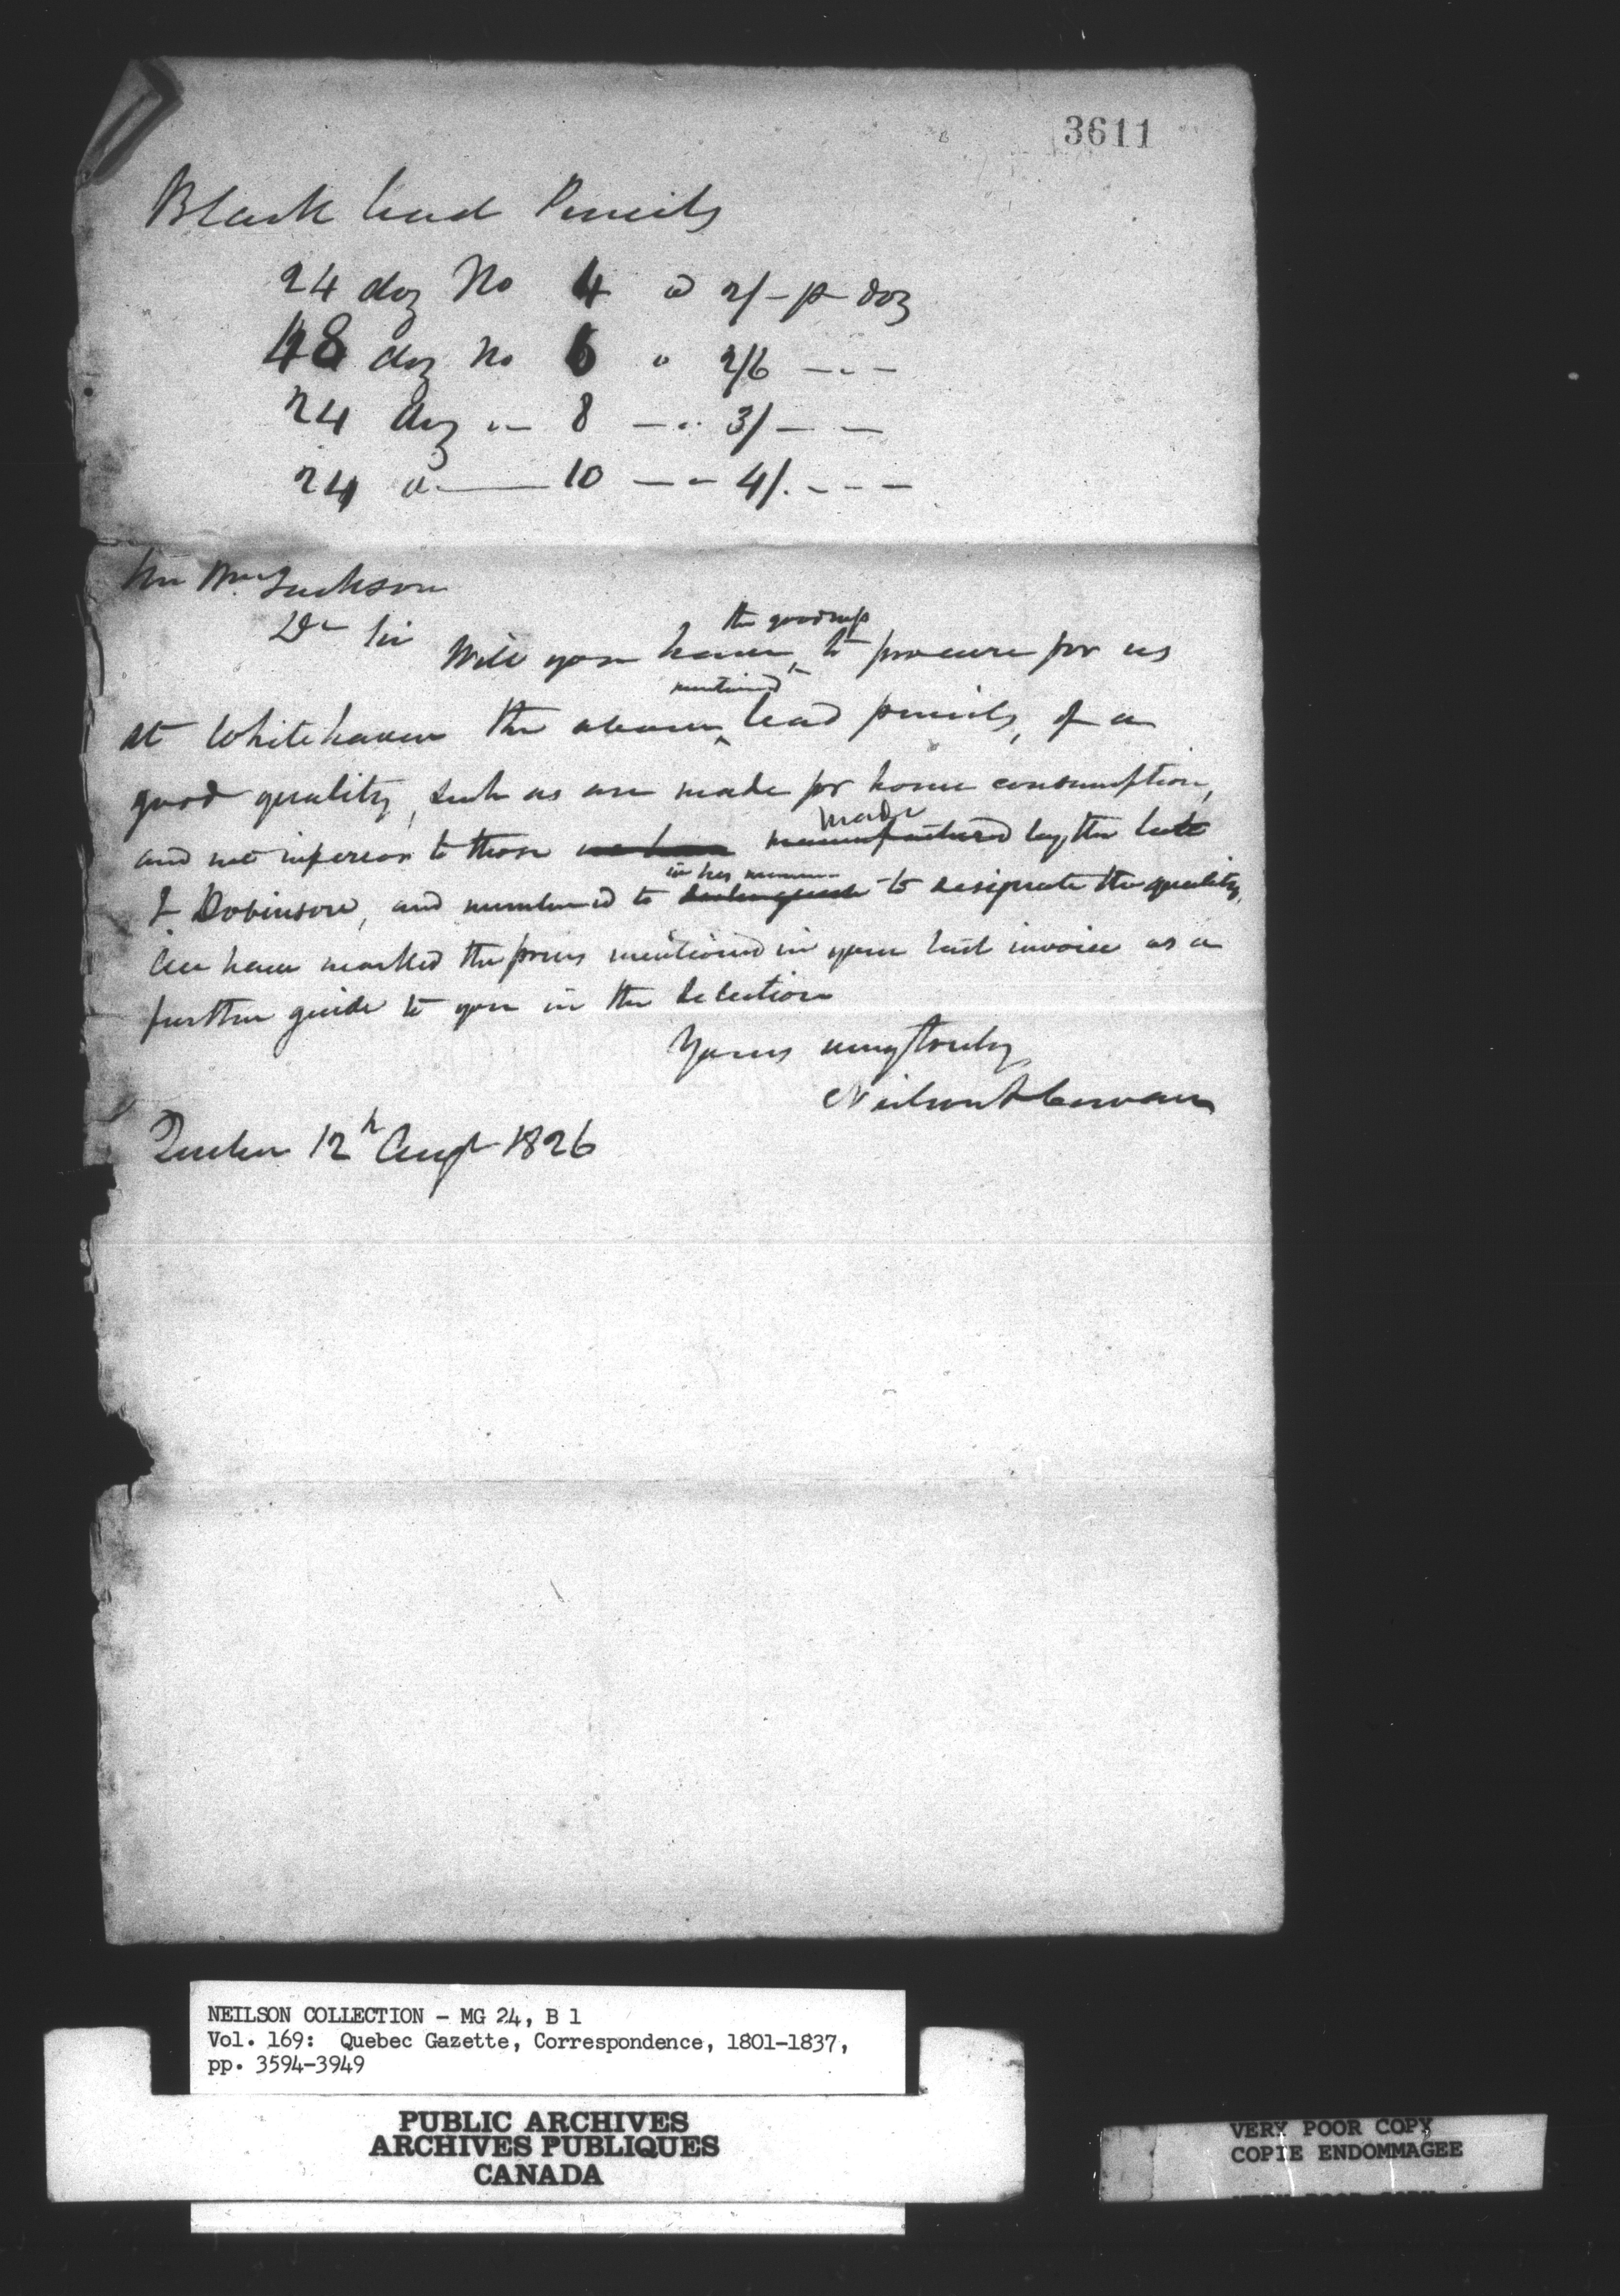 3611
Black lead Pencils
24 doz No 4 @ 2/- p doz
48 doz No 6 " 2/6 - " -
24 doz " - 8 - " 3/ - -
24 d - 10 - - 4/. - - -
Mr Wm. Jackson
Dr Sir
the goodness
Will you have to procure for us
mentioned
at Whitehaven the above lead pencils, of a
good quality, such as are made for home consumption,
made
and not inferior to those we have manufactured by the late
in his manner
J Dobinson, and numbered to to designate the quality,
We have marked the prices mentioned in your last invoice as a
further guide to you in the selection
Yours very truly
Neilson & Cowan
Quebec 12th Augt 1826
NEILSON COLLECTION - MG 24, B 1
Vol. 169: Quebec Gazette, Correspondence, 1801-1837,
pp. 3594-3949
PUBLIC ARCHIVES
ARCHIVES PUBLIQUES
CANADA
VERY POOR COPY
COPIE ENDOMMAGEE